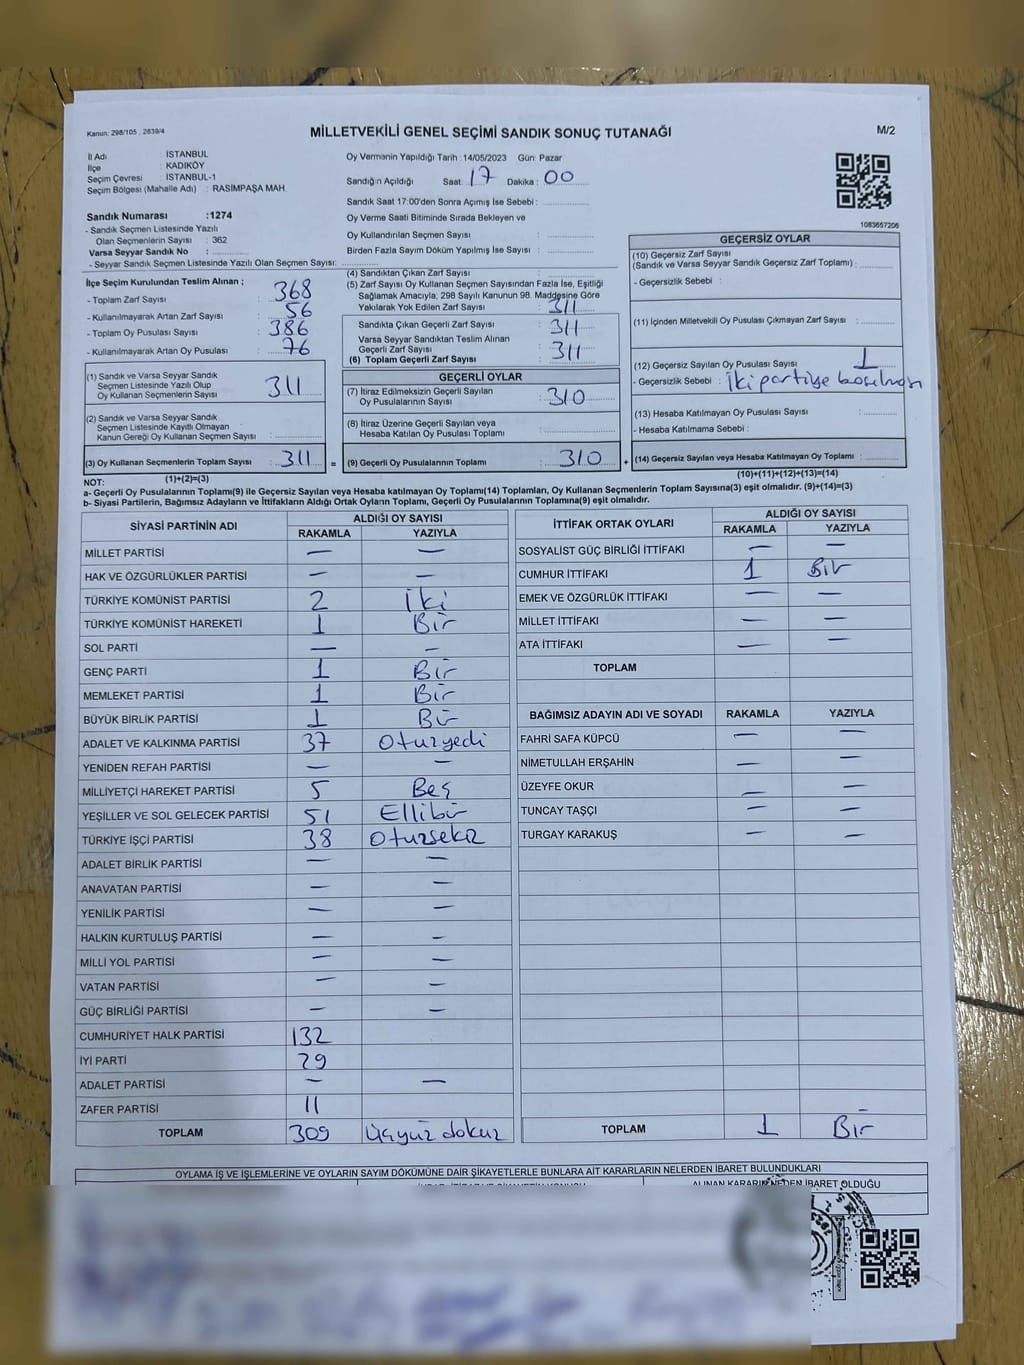 Kanun: 298/105 , 2839/4
MİLLETVEKİLİ GENEL SEÇİMİ SANDIK SONUÇ TUTANAĞI
M/2
İl Adı : İSTANBUL
İlçe : KADIKÖY
Seçim Çevresi : İSTANBUL-1
Seçim Bölgesi (Mahalle Adı) : RASİMPAŞA MAH.
Sandık Numarası :1274
- Sandık Seçmen Listesinde Yazılı
Olan Seçmenlerin Sayısı : 362
Varsa Seyyar Sandık No :
- Seyyar Sandık Seçmen Listesinde Yazılı Olan Seçmen Sayısı:
Oy Vermenin Yapıldığı Tarih :14/05/2023 Gün: Pazar
Sandığın Açıldığı Saat: 17 Dakika: 00
Sandık Saat 17:00'den Sonra Açılmış İse Sebebi :
Oy Verme Saati Bitiminde Sırada Bekleyen ve
Oy Kullandırılan Seçmen Sayısı :
Birden Fazla Sayım Döküm Yapılmış İse Sayısı :
1083657206
İlçe Seçim Kurulundan Teslim Alınan ;
- Toplam Zarf Sayısı : 368
- Kullanılmayarak Artan Zarf Sayısı : 56
- Toplam Oy Pusulası Sayısı : 386
- Kullanılmayarak Artan Oy Pusulası : 76
(1) Sandık ve Varsa Seyyar Sandık
Seçmen Listesinde Yazılı Olup
Oy Kullanan Seçmenlerin Sayısı : 311
(2) Sandık ve Varsa Seyyar Sandık
Seçmen Listesinde Kayıtlı Olmayan
Kanun Gereği Oy Kullanan Seçmen Sayısı :
(3) Oy Kullanan Seçmenlerin Toplam Sayısı : 311 =
(1)+(2)=(3)
(4) Sandıktan Çıkan Zarf Sayısı :
(5) Zarf Sayısı Oy Kullanan Seçmen Sayısından Fazla İse, Eşitliği
Sağlamak Amacıyla, 298 Sayılı Kanunun 98. Maddesine Göre
Yakılarak Yok Edilen Zarf Sayısı : 311
Sandıkta Çıkan Geçerli Zarf Sayısı : 311
Varsa Seyyar Sandıktan Teslim Alınan
Geçerli Zarf Sayısı : 311
(6) Toplam Geçerli Zarf Sayısı
GEÇERLİ OYLAR
(7) İtiraz Edilmeksizin Geçerli Sayılan
Oy Pusulalarının Sayısı : 310
(8) İtiraz Üzerine Geçerli Sayılan veya
Hesaba Katılan Oy Pusulası Toplamı :
(9) Geçerli Oy Pusulalarının Toplamı : 310 +
GEÇERSİZ OYLAR
(10) Geçersiz Zarf Sayısı
(Sandık ve Varsa Seyyar Sandık Geçersiz Zarf Toplamı) :
- Geçersizlik Sebebi :
(11) İçinden Milletvekili Oy Pusulası Çıkmayan Zarf Sayısı :
(12) Geçersiz Sayılan Oy Pusulası Sayısı : 1
- Geçersizlik Sebebi : İki partiye basılması
(13) Hesaba Katılmayan Oy Pusulası Sayısı :
- Hesaba Katılmama Sebebi :
(14) Geçersiz Sayılan veya Hesaba Katılmayan Oy Toplamı :
(10)+(11)+(12)+(13)=(14)
NOT:
a- Geçerli Oy Pusulalarının Toplamı(9) ile Geçersiz Sayılan veya Hesaba katılmayan Oy Toplamı(14) Toplamları, Oy Kullanan Seçmenlerin Toplam Sayısına(3) eşit olmalıdır. (9)+(14)=(3)
b- Siyasi Partilerin, Bağımsız Adayların ve İttifakların Aldığı Ortak Oyların Toplamı, Geçerli Oy Pusulalarının Toplamına(9) eşit olmalıdır.
SİYASİ PARTİNİN ADI ALDIĞI OY SAYISI
RAKAMLA YAZIYLA
MİLLET PARTİSİ — —
HAK VE ÖZGÜRLÜKLER PARTİSİ — —
TÜRKİYE KOMÜNİST PARTİSİ 2 İki
TÜRKİYE KOMÜNİST HAREKETİ 1 Bir
SOL PARTİ — —
GENÇ PARTİ 1 Bir
MEMLEKET PARTİSİ 1 Bir
BÜYÜK BİRLİK PARTİSİ 1 Bir
ADALET VE KALKINMA PARTİSİ 37 Otuzyedi
YENİDEN REFAH PARTİSİ — —
MİLLİYETÇİ HAREKET PARTİSİ 5 Beş
YEŞİLLER VE SOL GELECEK PARTİSİ 51 Ellibir
TÜRKİYE İŞÇİ PARTİSİ 38 Otuzsekiz
ADALET BİRLİK PARTİSİ — —
ANAVATAN PARTİSİ — —
YENİLİK PARTİSİ — —
HALKIN KURTULUŞ PARTİSİ — —
MİLLİ YOL PARTİSİ — —
VATAN PARTİSİ — —
GÜÇ BİRLİĞİ PARTİSİ — —
CUMHURİYET HALK PARTİSİ 132
İYİ PARTİ 29
ADALET PARTİSİ — —
ZAFER PARTİSİ 11
TOPLAM 309 Üçyüz dokuz
İTTİFAK ORTAK OYLARI ALDIĞI OY SAYISI
RAKAMLA YAZIYLA
SOSYALİST GÜÇ BİRLİĞİ İTTİFAKI — —
CUMHUR İTTİFAKI 1 Bir
EMEK VE ÖZGÜRLÜK İTTİFAKI — —
MİLLET İTTİFAKI — —
ATA İTTİFAKI — —
TOPLAM
BAĞIMSIZ ADAYIN ADI VE SOYADI RAKAMLA YAZIYLA
FAHRİ SAFA KÜPCÜ — —
NİMETULLAH ERŞAHİN — —
ÜZEYFE OKUR — —
TUNCAY TAŞÇI — —
TURGAY KARAKUŞ — —
TOPLAM 1 Bir
OYLAMA İŞ VE İŞLEMLERİNE VE OYLARIN SAYIM DÖKÜMÜNE DAİR ŞİKAYETLERLE BUNLARA AİT KARARLARIN NELERDEN İBARET BULUNDUKLARI
ALINAN KARARIN NEDEN İBARET OLDUĞU